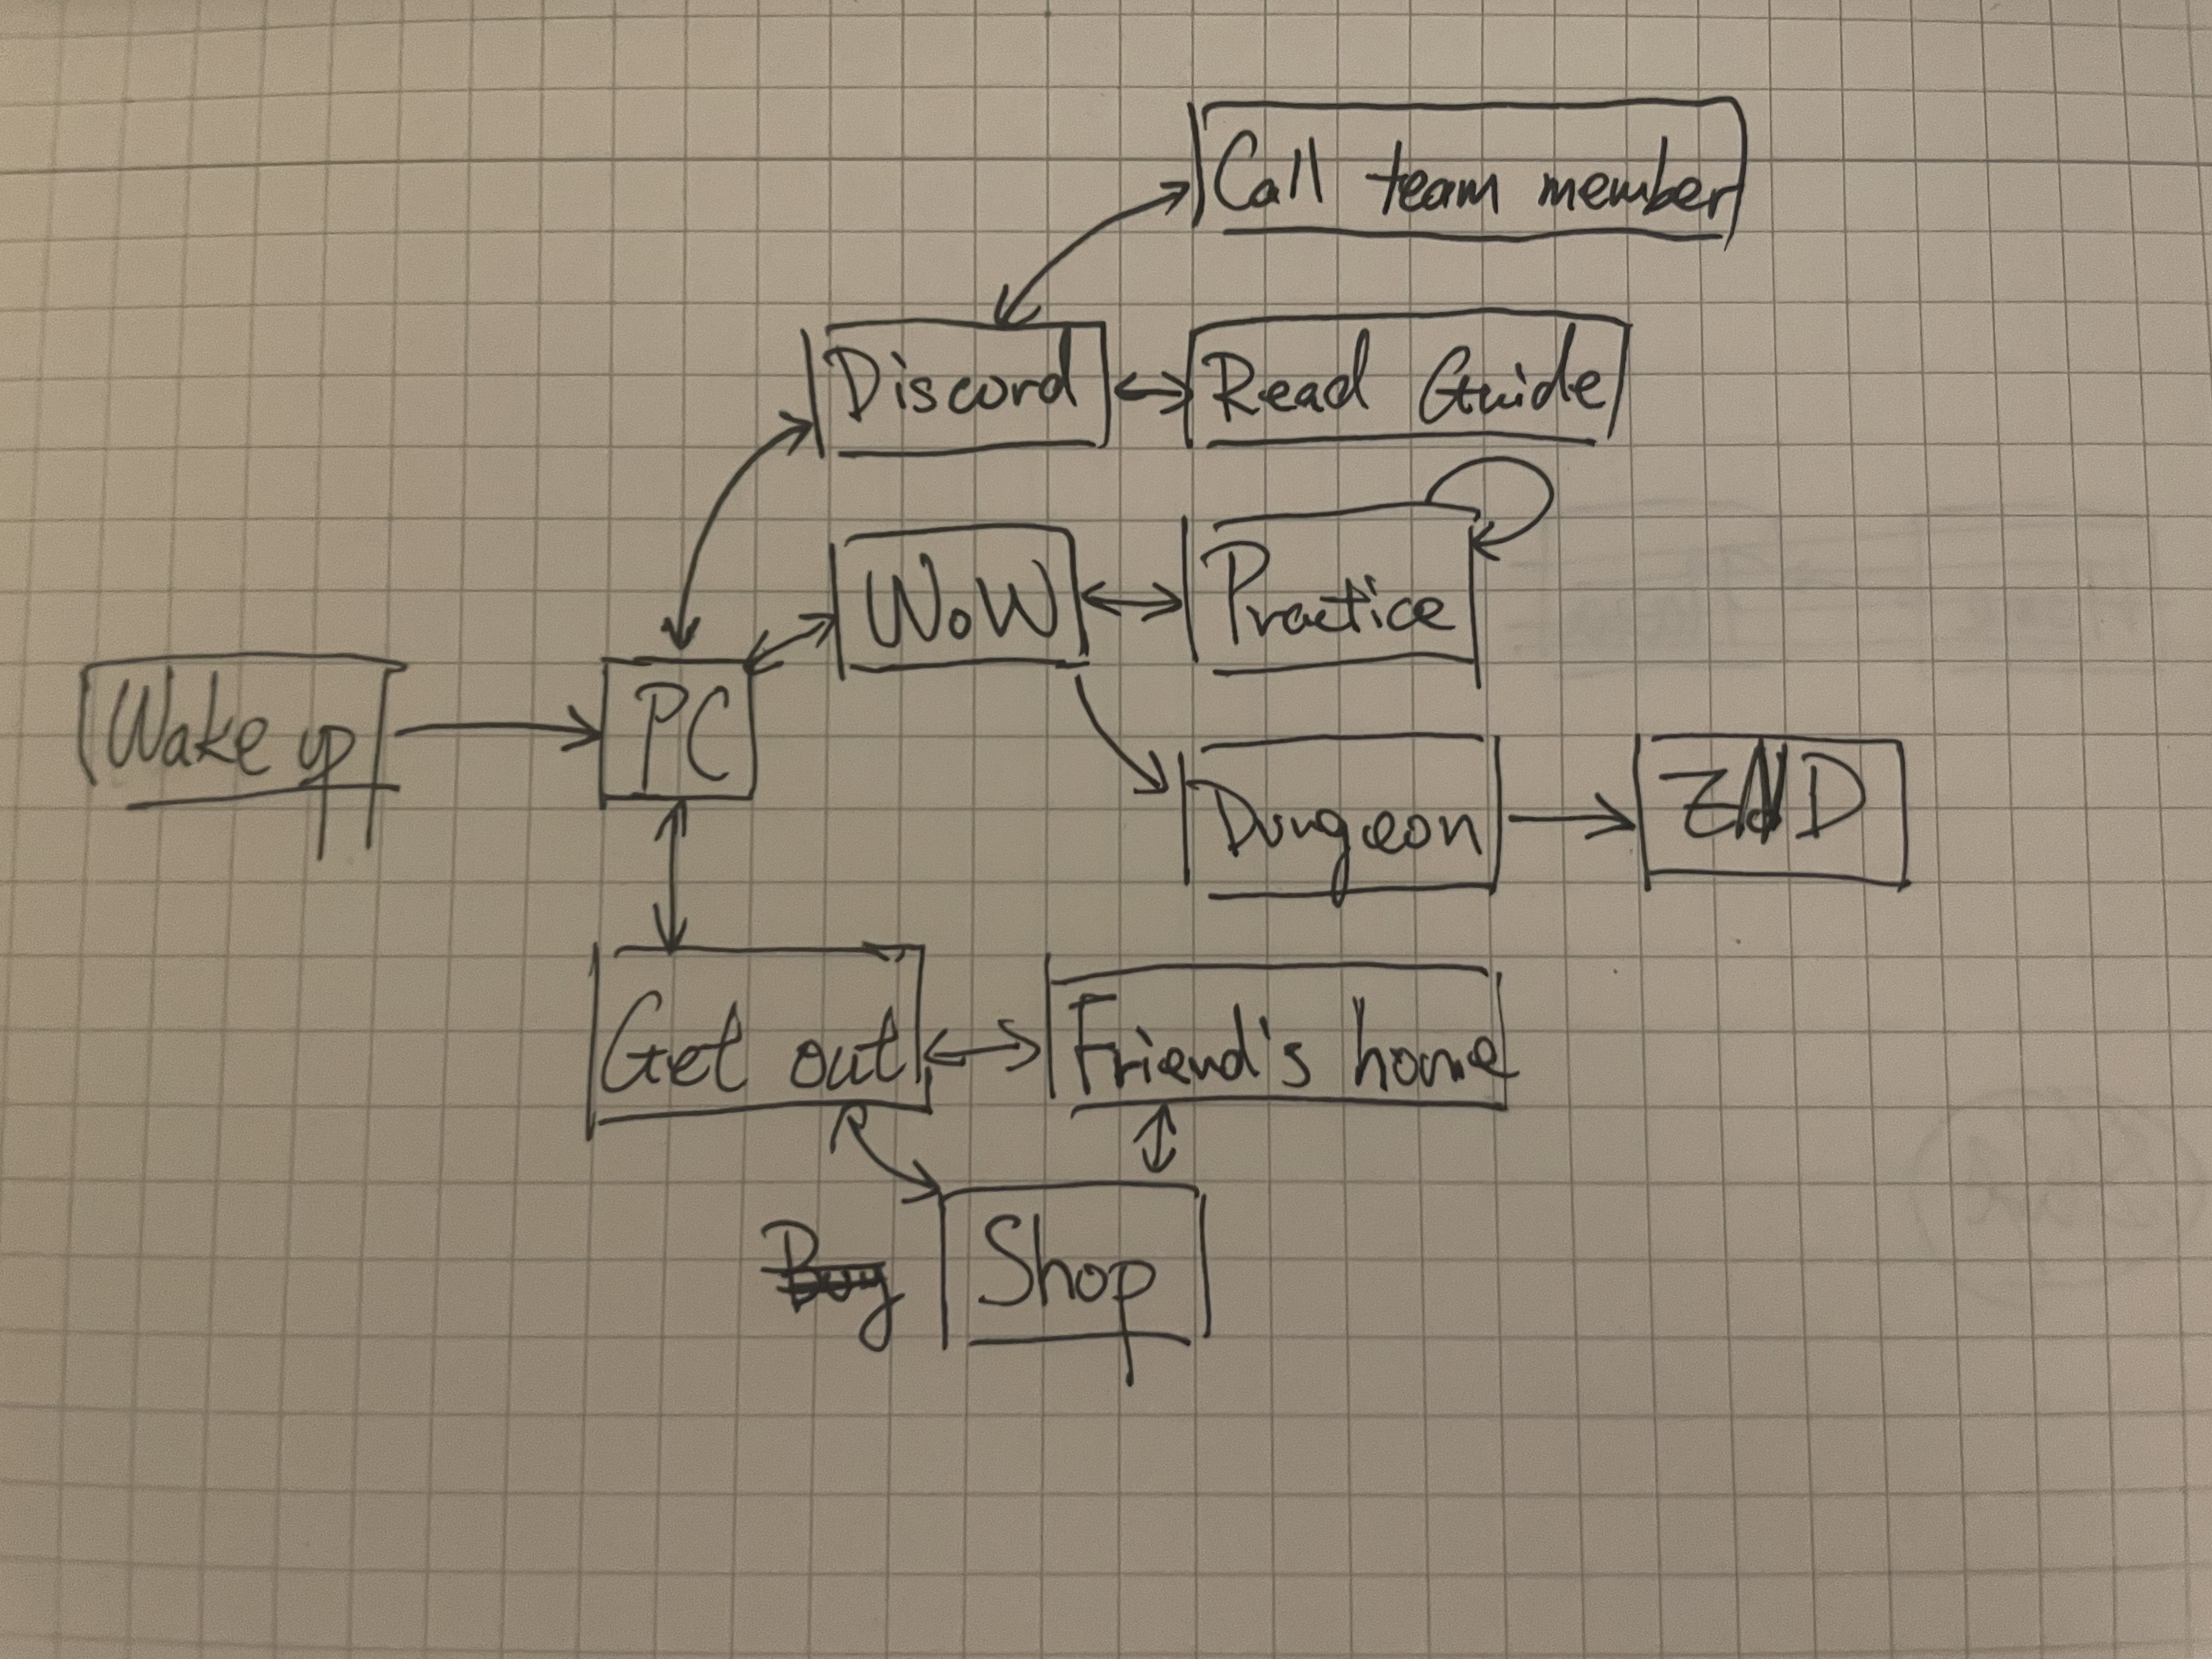 Call team member
Discord
Read Guide
WoW
Practice
Wake up
PC
Dungeon
END
Get out
Friend's home
Buy
Shop